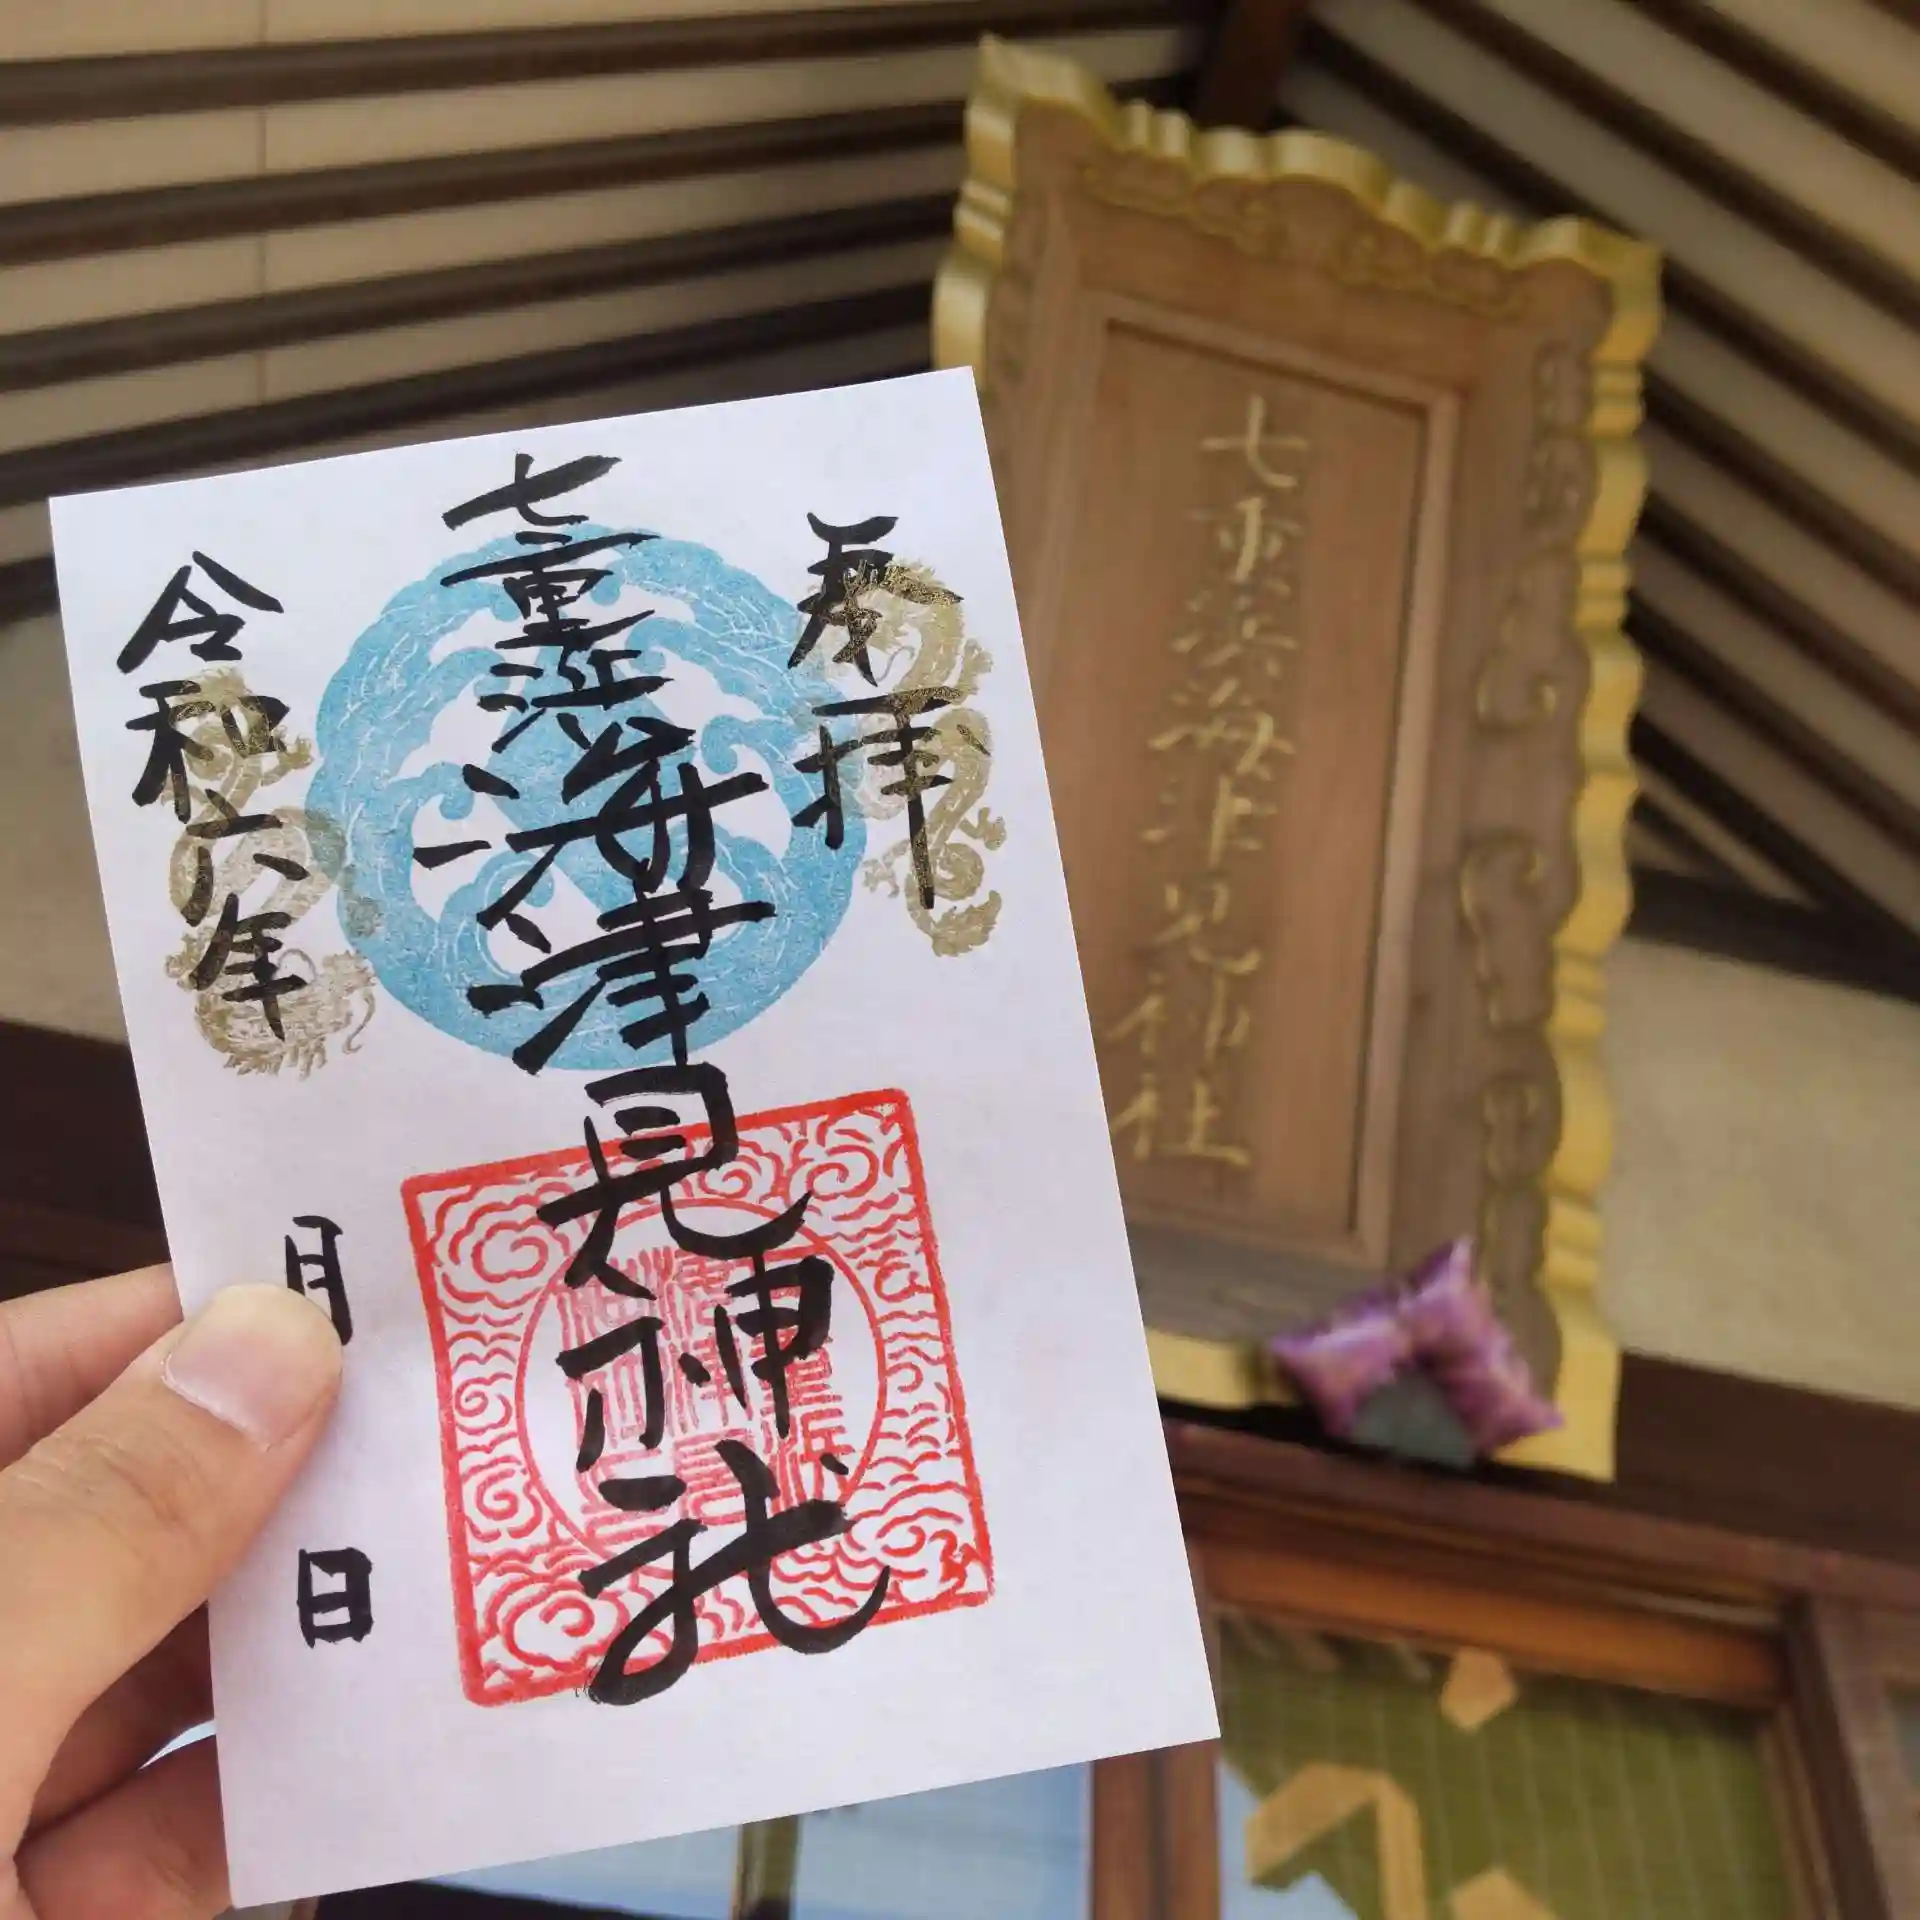 奉拝
七重浜海津見神社
令和六年
月
日
七重浜海津見神社